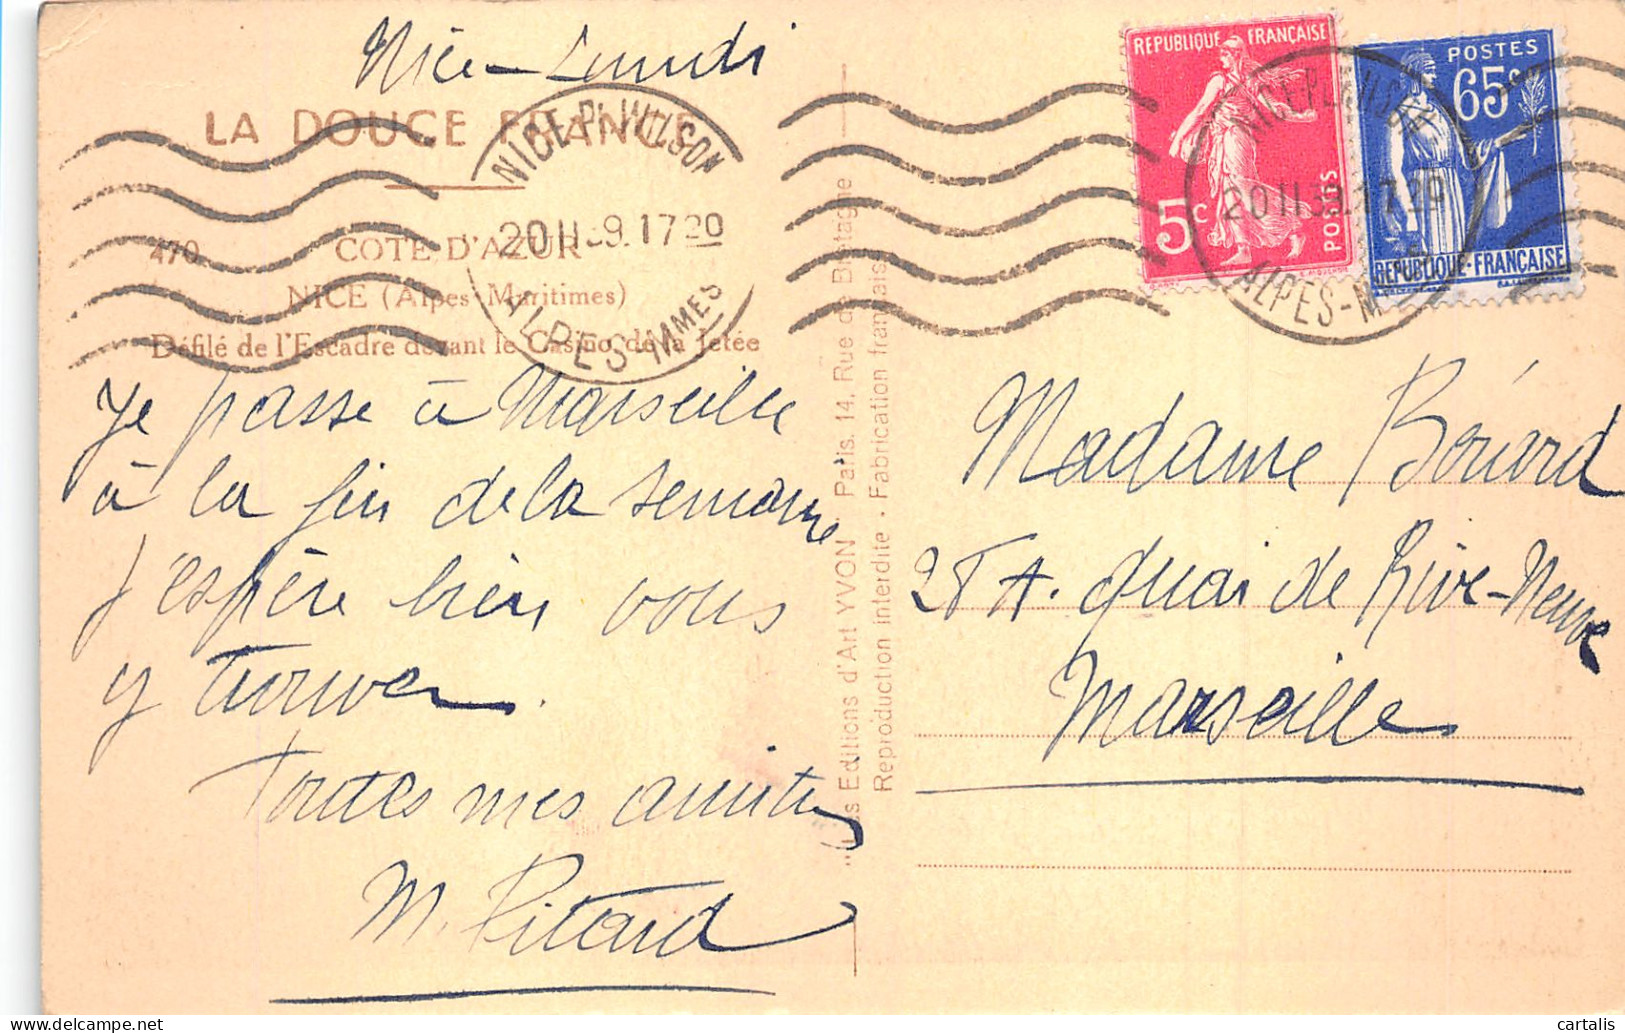 Nice - Lundi
LA DOUCE FRANCE
470
COTE D'AZUR
NICE (Alpes-Maritimes)
Défilé de l'Escadre devant le Casino de la Jetée
NICE Pl. WILSON
20 II 39. 17 20
ALPES-MMES
Je passe à Marseille
à la fin de la semaine
J'espère bien vous
y trouver.
Toutes mes amitiés
M. Pitard
"Les Editions d'Art YVON" Paris. 14, Rue de Bretagne
Reproduction interdite - Fabrication française
REPUBLIQUE FRANÇAISE
5c
POSTES
POSTES
65c
REPUBLIQUE-FRANÇAISE
NICE Pl. WILSON
20 II 39. 17 20
ALPES-M
Madame
A. Quai de Rive-Neuve
Marseille
cartalis